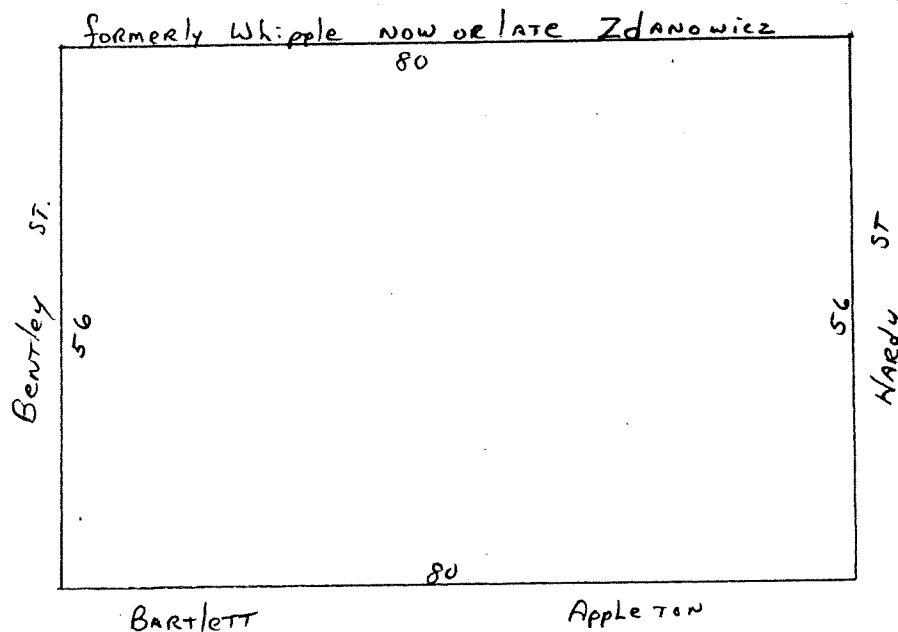 formerly Whipple NOW OR lATE ZdANOwicz
80
BENTley ST.
56
56
HARdy ST
80
BARTlETT AppleTON